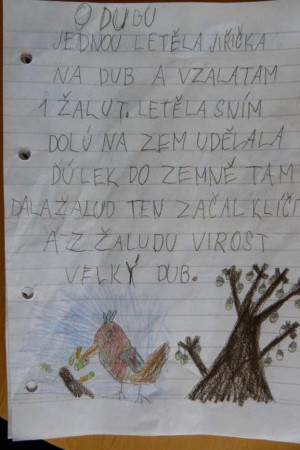 O DUBU
JEDNOU LETĚLA JIŘIČKA
NA DUB A VZALATAM
1 ŽALUT. LETĚLA SNÍM
DOLŮ NA ZEM UDĚLALA
ĎŮLEK DO ZEMNĚ TAM
DALA ŽALUD TEN ZAČAL KLÍČI
A Z ŽALUDU VIROST
VELKÝ DUB.